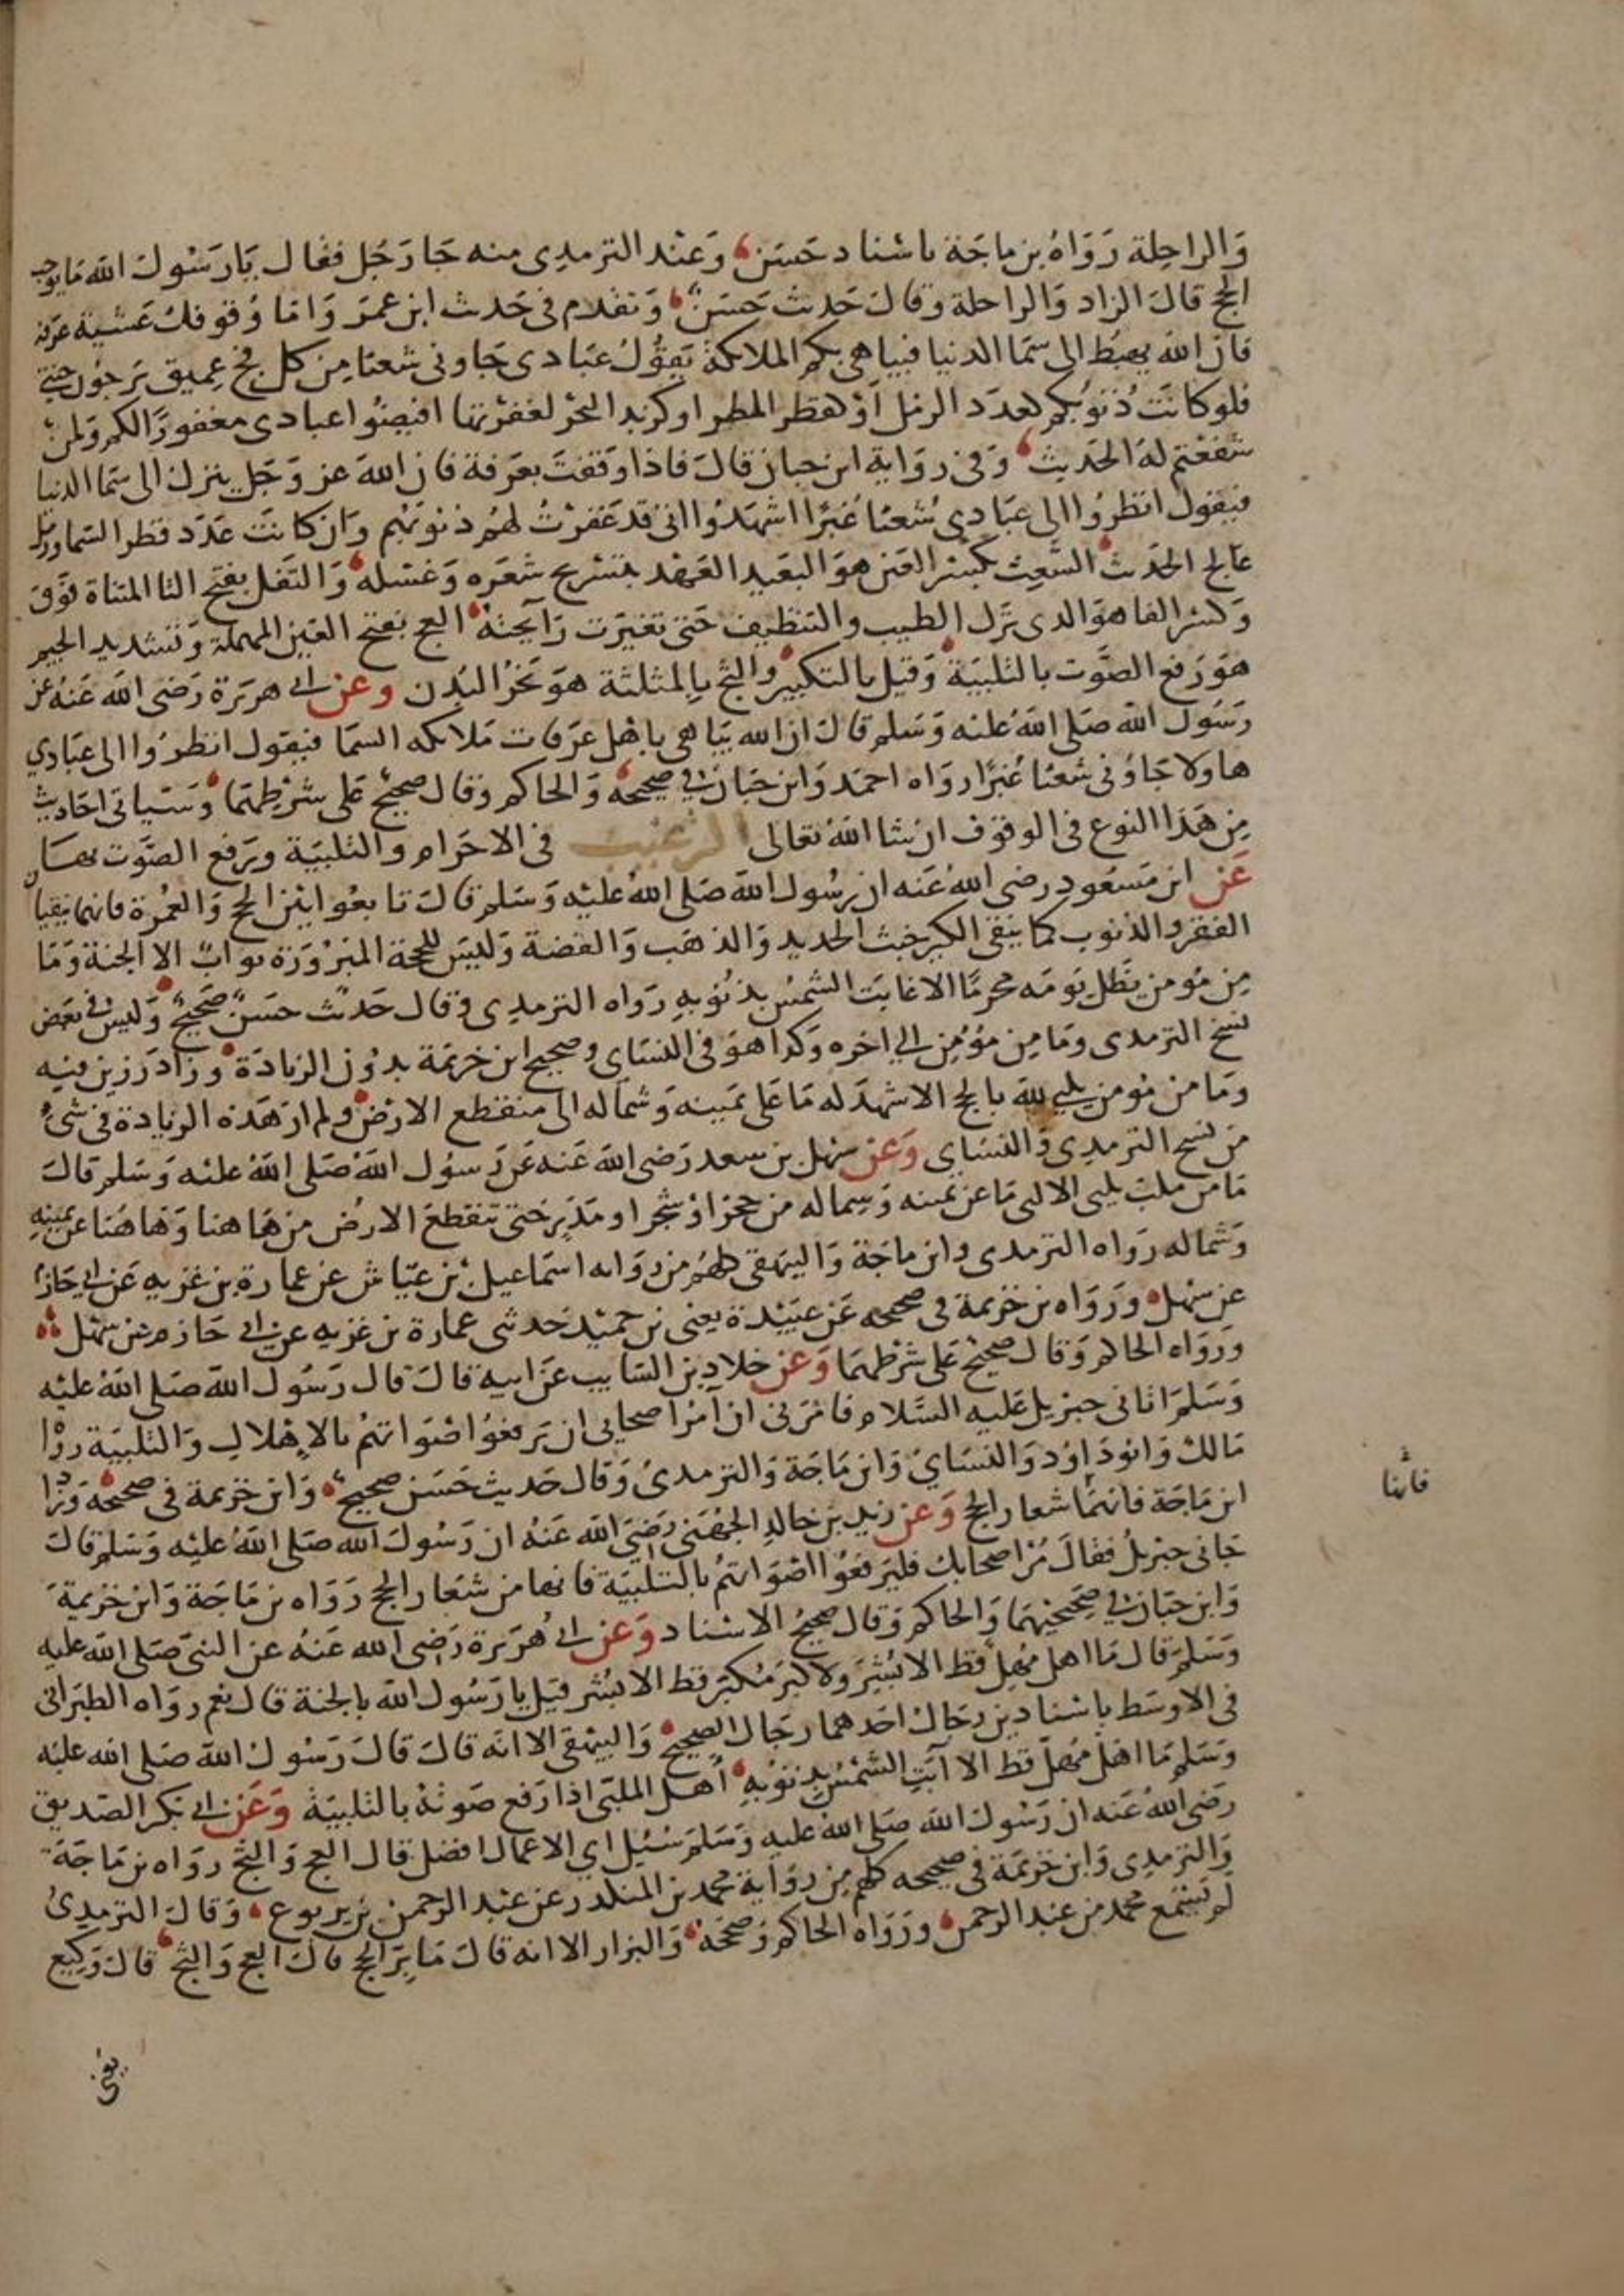 وَالراحِلة رَوَاهُ بن ماجَة باسْناد حَسَن وَعنْد الترمدِى منه جَا رَجُل فقال يَا رَسُول الله مَا يوجب
الحج قالَ الزاد وَالراحلة وقالَ حَديث حَسَنٌ وَتقدم فى حَديث ابن عمَر وَامَا وُقوفك عَشيَة عرَفة
فان الله يهبُط الى سَمَا الدنيا فيباهى بكم الملائكة يَقوُلُ عبَادى جَاونى شعثا مِن كل فج عِميق يَرجُون جنتى
فلو كانَت ذُنوُبكم كعدَد الرمل اوْ كقطر المطر او كزبد البَحْر لغفرْتها افيضُوا عبادى مغفورًا لكم وَلمنْ
شفعْتم لهَ الحَديث وَفى روَاية ابن حبان قالَ فاذا وَقفتَ بعَرَفة فان الله عز وَجَل ينزل الى سَما الدنيا
فيَقول انظرُوا الى عبَادى شُعثا غُبرًا اشهَدُوا انى قد غَفرْتُ لهُم ذنوبَهم وَان كانَت عَدَد قطر السَما ورَمل
عَالج الحَديث الشَّعِث بكسْر العَين هوَ البَعيد العَهْد بتسْريح شعَره وَغسْله وَالتَفل بفتح التا المثناة فوَق
وَكسْر الفا هوَ الذى ترَك الطيب والتنظيف حَتى تغيَرت رَايحَتهُ العج بفتح العَين المهملة وَتشديد الجيم
هوَ رَفع الصَّوت بالتلبيَة وَقيل بالتكبير والثج بالمثلثة هوَ نحَرُ البُدن وعن ابى هريَرة رَضى الله عَنهُ عن
رَسُول الله صَلى اللهُ عليه وَسَلم قالَ ان الله يبَاهى باهْل عرَفات مَلائكه السَما فيَقول انظرُوا الى عبَادي
هاولا جَاوُنى شعثا غُبرًا روَاه احمَد وَابن حبَان فى صَحيحه وَالحاكم وقال صحيحٌ عَلى شرْطِهمَا وَسَياتى احَاديث
مِن هَذا النوع فى الوقوف ان شا اللهُ تعَالى الترغيب فى الاحرَام والتلبيَة ويَرفع الصَّوت بها
عَن ابن مَسعُود رضى اللهُ عَنه ان رسُول الله صَلى اللهُ عليْه وَسَلم قالَ تابعُوا بَيْن الحج وَالعمُرة فانهما ينفيان
الفقر والذنوب كما ينفى الكير خبث الحديد وَالذهَب وَالفضة وَليسَ للحجة المبرُورَة ثوابٌ الا الجنة وَمَا
مِن مُومن يَظل يَومَه محرمًا الا غابَت الشمسُ بذنُوُبهِ رَواه الترمدِى وقال حَديث حسَن صَحيحٌ وَليسَ فى بعَض
نسخ الترمدى ومَا مِن مؤمن الى اخره وَكذا هوَ فى النسَاى وصحيح ابن خزيمَة بدوُن الزيادَة وزَاد رَزين فيه
ومَا من مُومن يلبي لله بالحج الا شهدَ له مَا عَلى يَمينه وَشماله الى منقطع الارْض ولم ار هَذه الزيادة فى شئ
من نسخ الترمدِى والنسَاى وَعَن سهل بن سعد رَضى الله عَنه عَن رَسوُل اللهُ صَلى اللهُ عليْه وَسَلم قالَ
مَا من ملبّ يلبى الا لبى مَا عن يَمينه وَشماله من حجر اوْ شجر او مَدَر حَتى تنقطعَ الارُض من هَاهنا وَهاهُنا عن يمينهِ
وَشماله روَاه الترمدى وابن ماجَة وَالبيهَقى كلهُم من روَايه اسْمَاعيل بْن عيَاش عن عمارة بن غزيه عَن ابى حَازم
عن سهل ورَوَاه بن خزيمة فى صحيحه عَن عبَيْدة يعنى بن حميْد حَدثنى عمارة بن غزيه عن ابى حَازم عن سهل
ورَوَاه الحاكم وَقال صحيحٌ عَلى شرْطهمَا وَعن خلاد بن السَايب عَن ابيه قالَ قال رَسُول الله صَلى اللهُ عليْه
وَسَلم اتانى جبرْيل عَليه السَّلام فامَرنى ان آمُر اصحابى ان يَرفعوُا اصْوَاتهمُ بالاهْلالِ وَالتلبيَة روَاه
مَالك وَابودَاوُد وَالنسَايُ وَابن مَاجَة وَالترمدىُ وَقال حَديث حَسَن صحيح وَابن خزيمة فى صحيحة وَزاد
ابن مَاجَة فانهمَا شعار الحج وَعن زيد بن خالدِ الجهَنى رَضىَ الله عَنهُ ان رَسُولَ الله صَلى اللهُ عليْه وَسَلم قالَ
فانها
جَانى جبْريلُ فقالَ مُر اصحابك فليَرفعُوا اصْوَاتهُم بالتلبيَة فانها من شعَار الحج رَوَاه بن مَاجَة وَابن خزيمةَ
وَابن حبَان فى صَحيحيهمَا وَالحاكم وَقال صحيحُ الاسْناد وَعَن ابى هُريَرة رَضى الله عَنهُ عن النبى صَلى الله عليه
وَسَلم قال مَا اهل مُهلّ قط الا بُشِّرَ ولا كبرَ مُكبّر قط الا بُشر قيل يا رَسُول الله بالجنة قال نعم روَاه الطبَرانى
فى الاوسَط باسْنادين رجَال احَدهما رجَال الصحيح وَالبيهَقى الا انَه قالَ قالَ رَسُول الله صَلى الله عليْه
وَسَلم مَا اهَل مُهلّ قط الا آبَت الشمْسُ بذنوُبهِ أهل الملبّى اذا رَفع صَوتهُ بالتلبيَة وَعَن ابى بَكر الصّديق
رَضى اللهُ عَنه ان رَسُولَ الله صَلى اللهُ عليه وَسَلم سُئل اي الاعمال افضل قال العج وَالثج روَاه بن مَاجَة
وَالترمدِى وَابن خزيمَة فى صَحيحه كلهم مِن روَاية محمد بن المنكدر عن عبْد الرحمن بن يربوع وَقالَ الترمدِىُ
لم يَسْمع محمد من عبْد الرحمن وروَاه الحاكم وَصَححَهُ وَالبزار الا انه قالَ مَا برّ الحج قالَ العج وَالثج قالَ وَكيع
يعنى